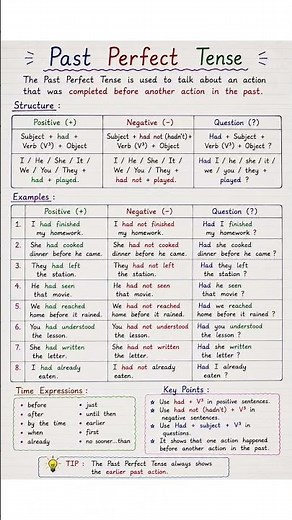 Past Perfect Tense
The Past Perfect Tense is used to talk about an action
that was completed before another action in the past.
Structure :
Positive (+) Negative (-) Question (?)
Subject + had + Subject + had not (hadn't) + Had + Subject +
Verb (V³) + Object Verb (V³) + Object Verb (V³) + Object ?
I / He / She / It / I / He / She / It / Had I / he / she / it /
We / You / They + We / You / They + we / you / they +
had + played. had not + played. played ?
Examples :
Positive (+) Negative (-) Question (?)
1. I had finished I had not finished Had I finished
my homework. my homework. my homework ?
2. She had cooked She had not cooked Had she cooked
dinner before he came. dinner before he came. dinner before he came ?
3. They had left They had not left Had they left
the station. the station. the station ?
4. He had seen He had not seen Had he seen
that movie. that movie. that movie ?
5. We had reached We had not reached Had we reached
home before it rained. home before it rained. home before it rained ?
6. You had understood You had not understood Had you understood
the lesson. the lesson. the lesson ?
7. She had written She had not written Had she written
the letter. the letter. the letter ?
8. I had already I had not already Had I already
eaten. eaten. eaten ?
Time Expressions :
• before • just
• after • until then
• by the time • earlier
• when • first
• already • no sooner...than
Key Points :
Use had + V³ in positive sentences.
Use had not (hadn't) + V³ in
negative sentences.
Use Had + subject + V³ in
questions.
It shows that one action happened
before another action in the past.
TIP : The Past Perfect Tense always shows
the earlier past action.